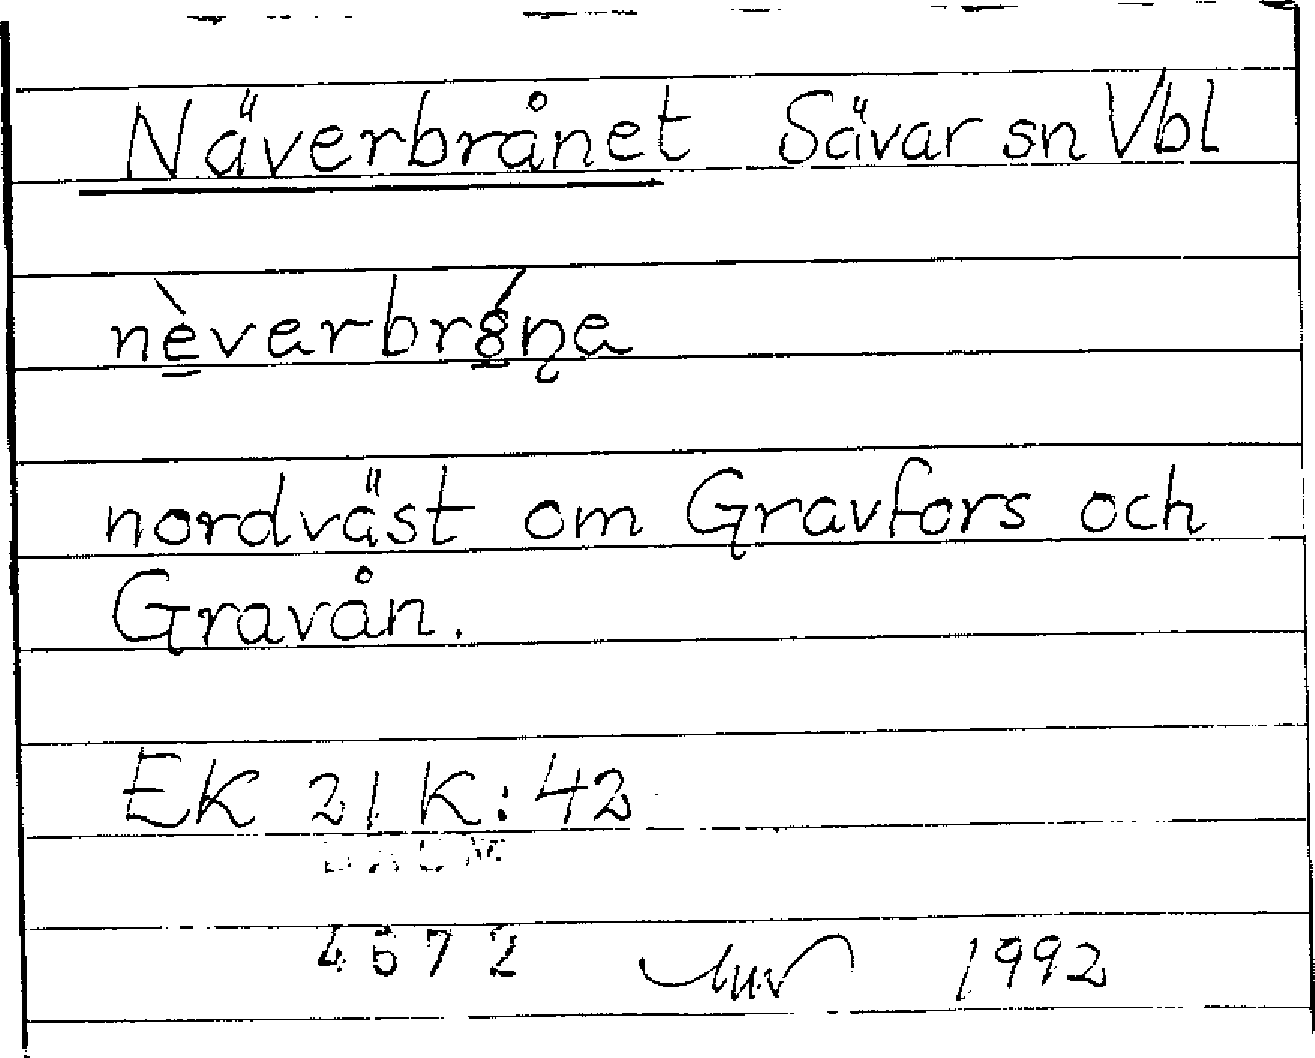 Näverbrånet Sävar sn Vbl
nè̱verbró̱ṇe
nordväst om Gravfors och
Gravån.
EK 21 K: 42
DAUM
4672 1992